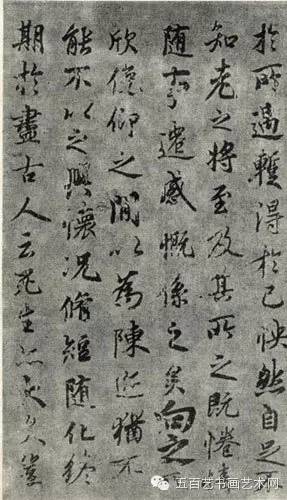 於所遇蹔得於己快然自足不
知老之將至及其所之既惓情
随事遷感慨係之矣向之所
欣俛仰之間以為陳迹猶不
能不以之興懷況脩短随化終
期於盡古人云死生亦大矣豈
五百艺书画艺术网